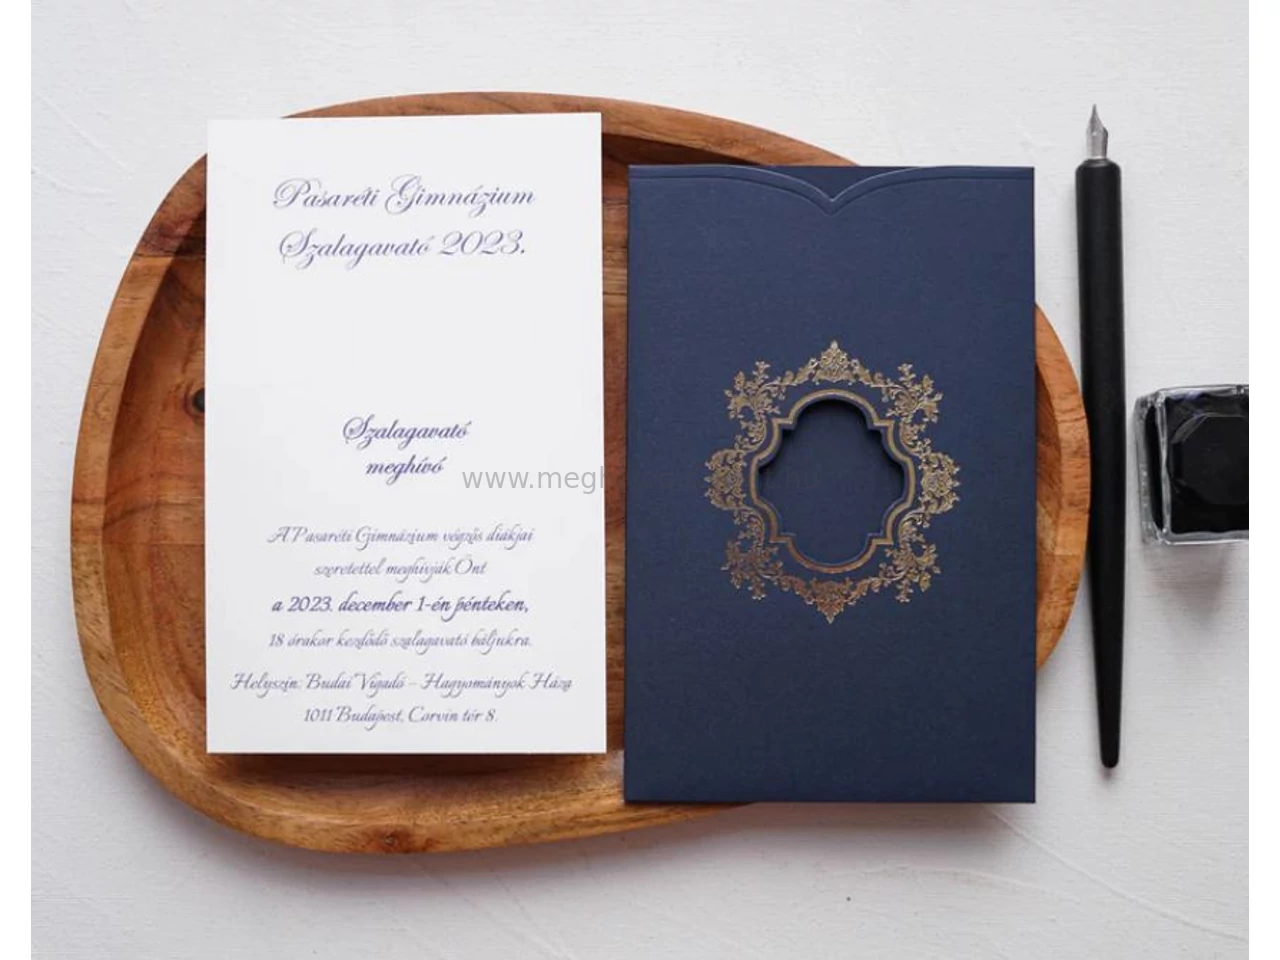 Pasaréti Gimnázium
Szalagavató 2023.
Szalagavató
meghívó
A Pasaréti Gimnázium végzős diákjai
szeretettel meghívják Önt
a 2023. december 1-én pénteken,
18 órakor kezdődő szalagavató báljukra.
Helyszín: Budai Vigadó – Hagyományok Háza
1011 Budapest, Corvin tér 8.